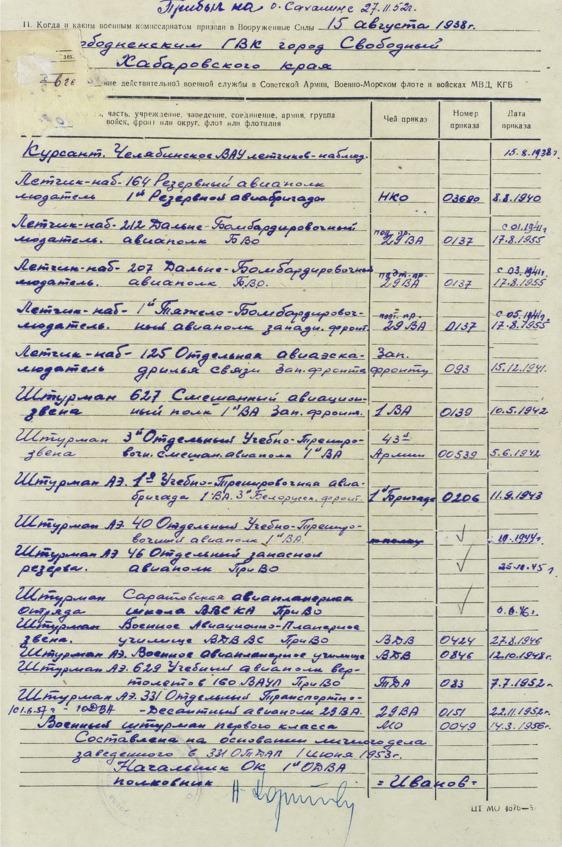 Прибыл на о. Сахалинс 27.11.52г.
11. Когда и каким военным комиссариатом призван в Вооруженные Силы 15 августа 1938г.
ободненским ГВК город Свободный
Хабаровского края
ние действительной военной службы в Советской Армии, Военно-Морском флоте и войсках МВД, КГБ
, часть, учреждение, заведение, соединение, армия, группа войск, фронт или округ, флот или флотилия Чей приказ Номер приказа Дата приказа
Курсант. Челябинское ВАУ летчиков-наблюд. 15.8.1938г
Летчик-наб- 164 Резервный авиаполк
людатель 1й Резервной авиабригады НКО 03680 8.8.1940
Летчик-наб- 212 Дальне-Бомбардировочный с 01.1941г
людатель. авиаполк БВО 29 ВА 0137 17.8.1955
Летчик-наб- 207 Дальне-Бомбардировочный с 03.1941г.
людатель. авиаполк БВО. 29 ВА 0137 17.8.1955
Летчик-наб- 1й Тяжело-Бомбардировоч- с 05.1941г
людатель. ный авиаполк западн. фронт. 29 ВА 0137 17.8.1955
Летчик-наб- 125 Отдельная авиаэска- Зап.
людатель дрилья связи Зап. фронта фронту 093 15.12.1941.
Штурман 627 Смешанный авиацион-
звена ный полк 1й ВА Зап. фронт. 1 ВА 0139 10.5.1942
Штурман 3й Отдельный Учебно-Трениро- 43й
звена вочн. смешан. авиаполк 1й ВА Армии 00539 5.6.1942
Штурман АЭ. 1я Учебно-Тренировочная авиа-
бригада 1 ВА. 3й Белорусск. фронт. 1й Бригаде 0206 11.9.1943
Штурман АЭ. 40 Отдельный Учебно-Трениро-
вочный авиаполк 1й ВА. 1944г.
Штурман АЭ 46 Отдельный запасной
резерва. авиаполк ПриВО 25.10.45г
Штурман Саратовская авиапланерная
отряда школа ВВС КА ПриВО
Штурман Военное Авиационно-Планерное
звена. училище ВДВ ВС ПриВО ВДВ 0424 27.8.1946
Штурман АЭ. Военное авиапланерное училище ВДВ 0846 12.10.1948г.
Штурман АЭ. 629 Учебный авиаполк вер-
толетов 160 ВАУЛ ПриВО ТДА 083 7.7.1952г.
Штурман АЭ. 331 Отдельный Транспортно-
-Десантный авиаполк 29 ВА. 29 ВА 0151 22.11.1952г.
Военный штурман первого класса МО 0049 14.3.1956г.
Составлена на основании личного дела
заведенного в 331 ОТДАП 1 июня 1953г.
Начальник ОК 1й ОДВА
полковник = Иванов =